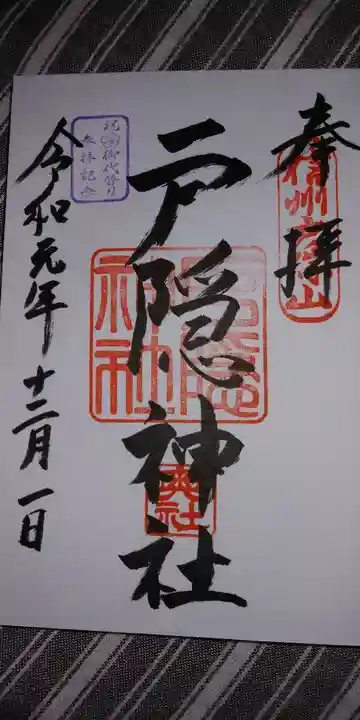 奉拝
信州戸隠山
戸隠神社
戸隠神社
奥社
祝御代替り
参拝記念
令和元年十二月一日